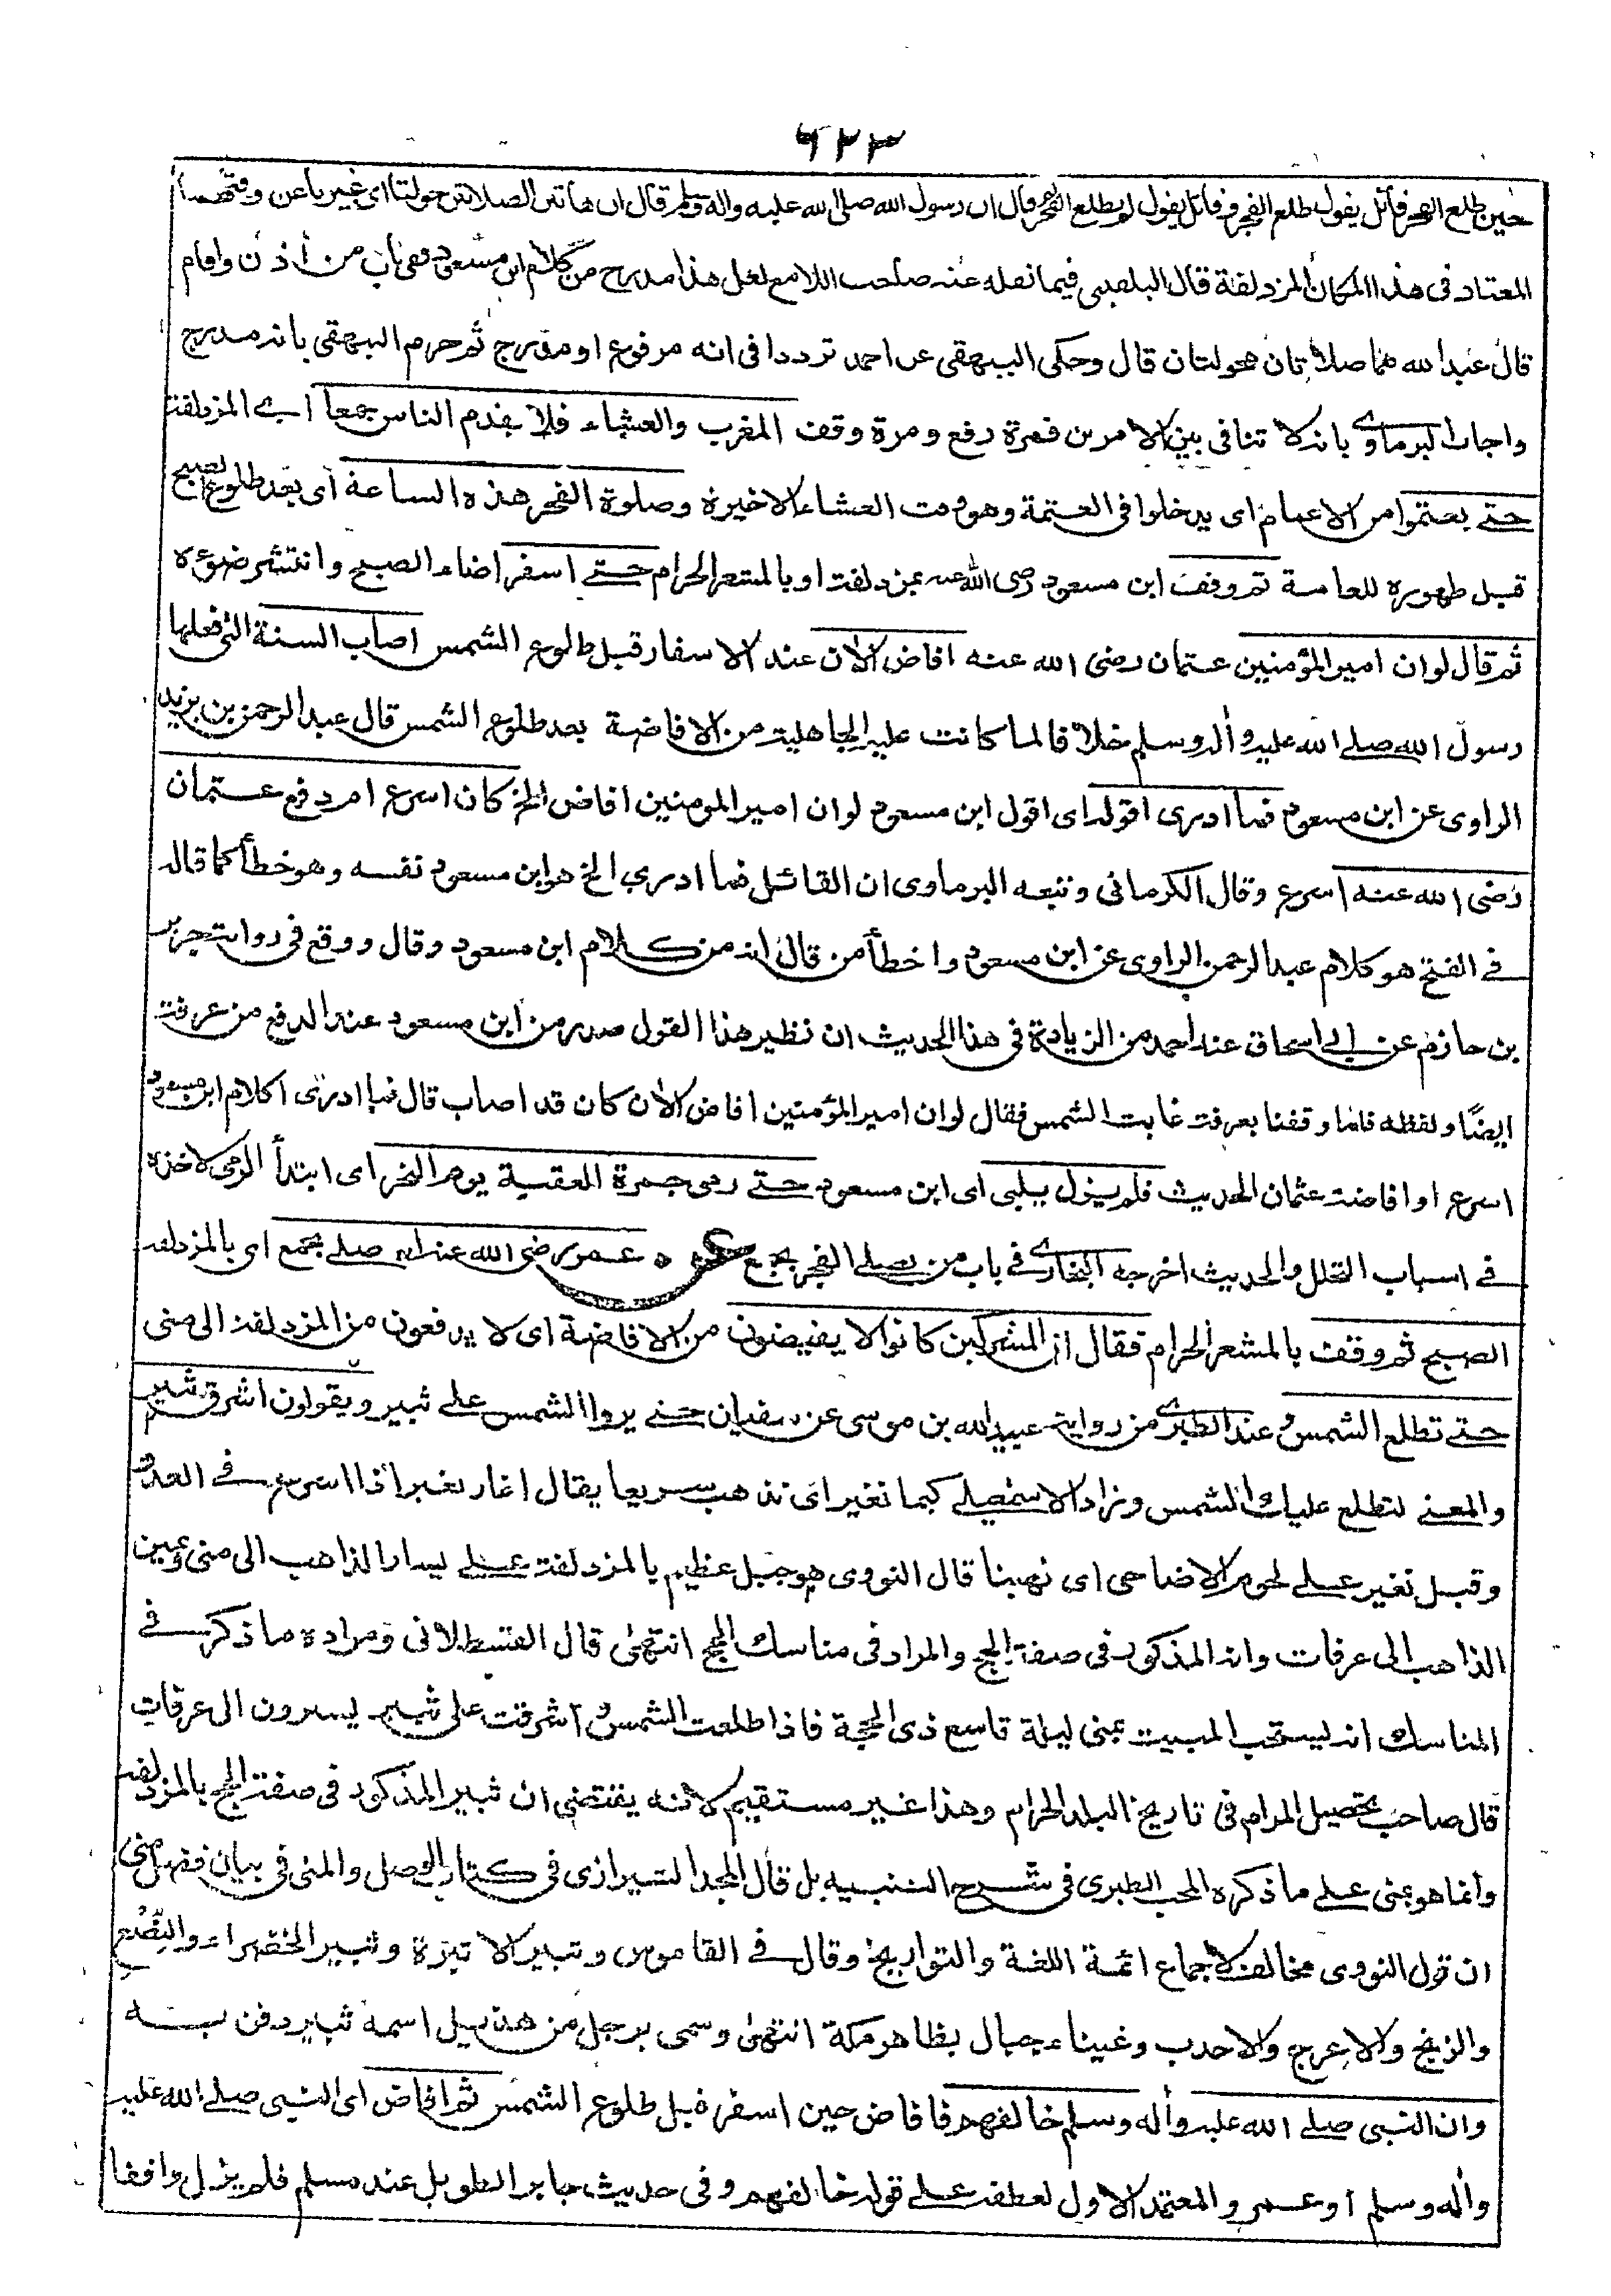 ٦٢٣
حين طلع الفجر قائل يقول طلع الفجر وقائل يقول لم يطلع الفجر قال ان رسول الله صلى الله عليه واله وسلم قال ان هاتين الصلاتين حولتا اى غيرتا عن وقتهما
المعتاد فى هذا المكان المزدلفة قال البلقينى فيما نقله عنه صاحب اللامع لعل هذا مدرج من كلام ابن مسعود ففى باب من أذن واقام
قال عبد الله هما صلاتان محولتان قال وحكى البيهقى عن احمد ترددا فى انه مرفوع او مدرج ثم جزم البيهقى بانه مدرج
واجاب البرماوى بانه لا تنافى بين الامرين فمرة رفع ومرة وقف المغرب والعشاء فلا يقدم الناس جمعا اى المزدلفة
حتى يعتموا من الاعتام اى يدخلوا فى العتمة وهو وقت العشاء الاخيرة وصلوة الفجر هذه الساعة اى بعد طلوع الصبح
قبل ظهوره للعامة ثم وقف ابن مسعود رضى الله عنه بمزدلفة او بالمشعر الحرام حتى اسفر اضاء الصبح وانتشر ضوءه
ثم قال لو ان امير المؤمنين عثمان رضى الله عنه افاض الان عند الاسفار قبل طلوع الشمس اصاب السنة التى فعلها
رسول الله صلى الله عليه وأله وسلم خلافا لما كانت عليه الجاهلية من الافاضة بعد طلوع الشمس قال عبد الرحمن بن يزيد
الراوى عن ابن مسعود فما ادرى اقوله اى اقول ابن مسعود لو ان امير المومنين افاض الخ كان اسرع ام دفع عثمان
رضى الله عنه اسرع وقال الكرمانى وتبعه البرماوى ان القائل فما ادرى الخ هو ابن مسعود نفسه وهو خطأ كما قاله
فى الفتح هو كلام عبد الرحمن الراوى عن ابن مسعود واخطأ من قال انه من كلام ابن مسعود وقال ووقع فى رواية جرير
بن حازم عن ابى اسحاق عند احمد من الزيادة فى هذا الحديث ان نظير هذا القول صدر من ابن مسعود عند الدفع من عرفة
ايضًا ولفظه فلما وقفنا بعرفة غابت الشمس فقال لو ان امير المؤمنين افاض الان كان قد اصاب قال فما ادرى اكلام ابن مسعود
اسرع او افاضة عثمان الحديث فلم يزل يلبى اى ابن مسعود حتى رمى جمرة العقبة يوم النحر اى ابتدأ الرمى لاخذه
فى اسباب التحلل والحديث اخرجه البخارى فى باب من يصلى الفجر بجمع عن عمر رضى الله عنه انه صلى بجمع اى بالمزدلفة
الصبح ثم وقف بالمشعر الحرام فقال ان المشركين كانوا لا يفيضون من الافاضة اى لا يدفعون من المزدلفة الى منى
حتى تطلع الشمس وعند الطبرى من رواية عبيد الله بن موسى عن سفيان حتى يروا الشمس على ثبير ويقولون اشرق ثبير
والمعنى لتطلع عليك الشمس وزاد الاسمعيلى كيما نغير اى نذهب سريعا يقال اغار يغير اذا اسرع فى العدو
وقيل نغير على لحوم الاضاحى اى نهبنا قال النووى هو جبل عظيم بالمزدلفة على يسار الذاهب الى منى ويمين
الذاهب الى عرفات وانه المذكور فى صفة الحج والمراد فى مناسك الحج انتهى قال القسطلانى ومراده ما ذكر فى
المناسك انه ليستحب المبيت بمنى ليلة تاسع ذى الحجة فاذا طلعت الشمس واشرقت على ثبير يسيرون الى عرفات
قال صاحب تحصيل المرام فى تاريخ البلد الحرام وهذا غير مستقيم لانه يقتضى ان ثبير المذكور فى صفة الحج بالمزدلفة
وانما هو بمنى على ما ذكره المحب الطبرى فى شرح التنبيه بل قال المجد الشيرازى فى كتاب الوصل والمنى فى بيان فضل منى
ان قول النووى مخالف لاجماع ائمة اللغة والتواريخ وقال فى القاموس وثبير الاثبرة وثبير الخضراء والنصع
والزنج والاعرج والاحدب وغيناء جبال بظاهر مكة انتهى وسمى برجل من هذيل اسمه ثبير دفن به
وان النبى صلى الله عليه وأله وسلم خالفهم فافاض حين اسفر قبل طلوع الشمس ثم افاض اى النبى صلى الله عليه
وأله وسلم او عمر والمعتمد الاول لعطفه على قوله خالفهم وفى حديث جابر الطويل عند مسلم فلم يزل واقفا